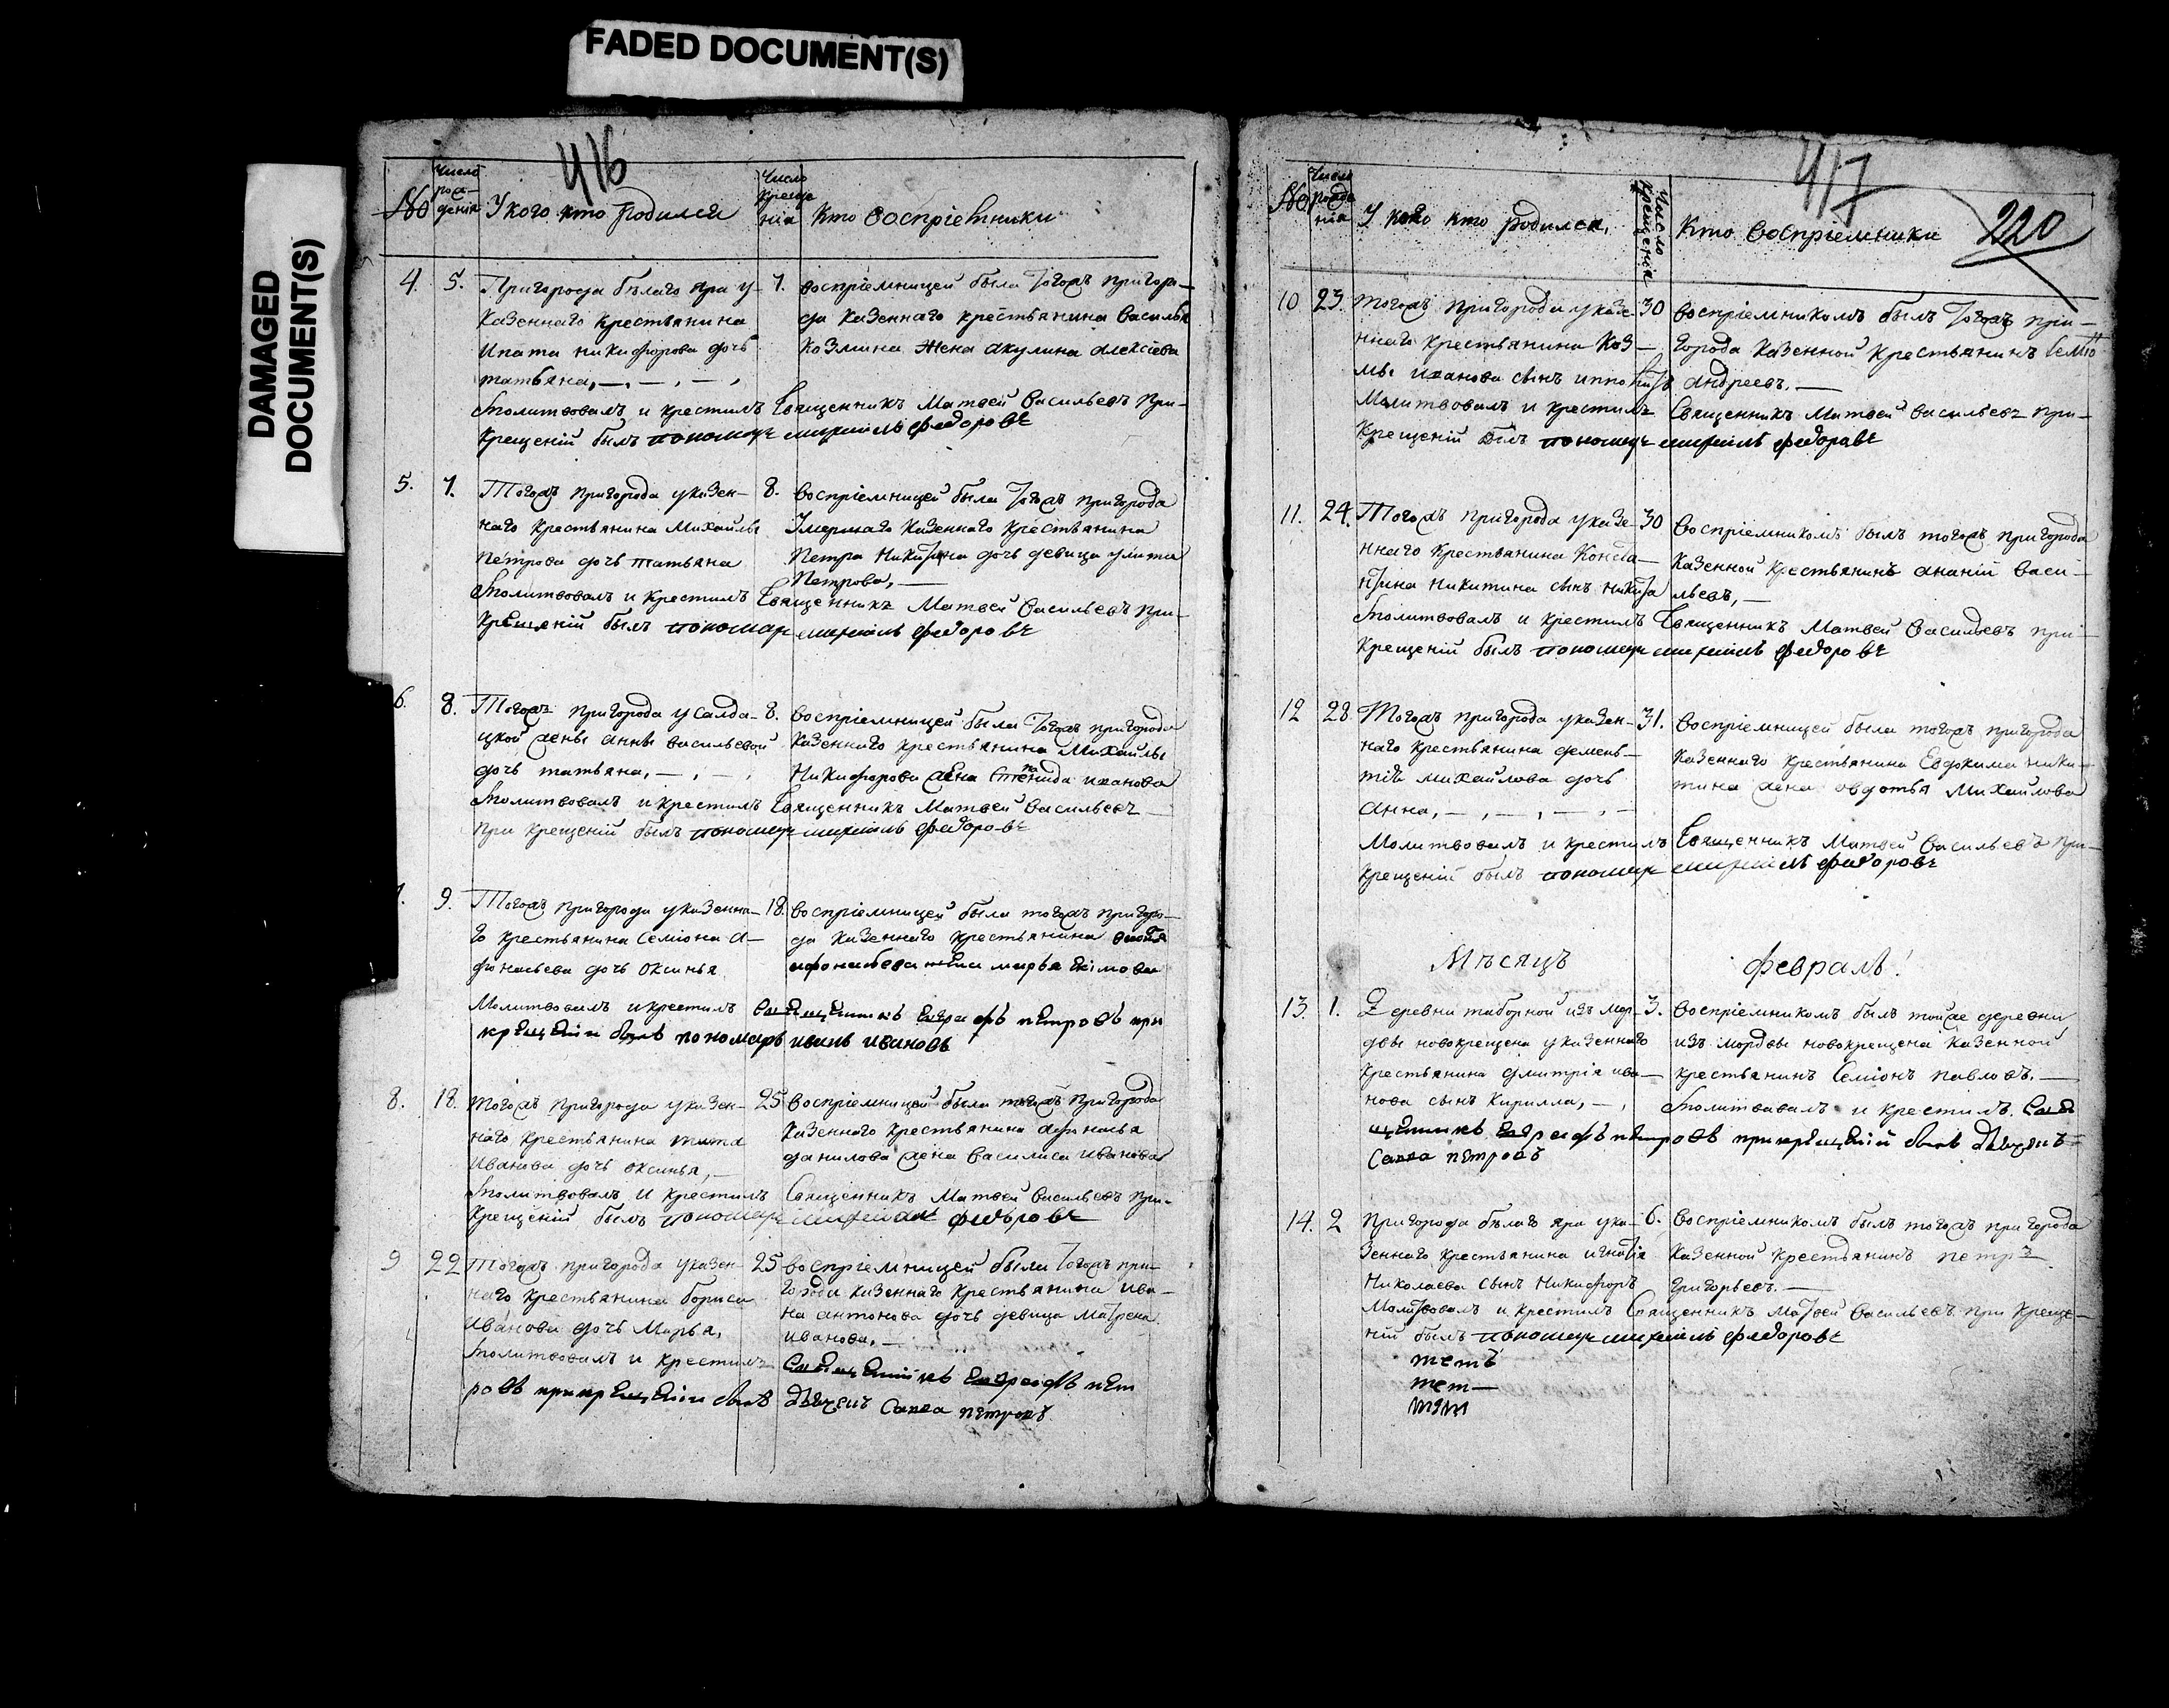 FADED DOCUMENT(S)
DAMAGED
DOCUMENT(S)
416
№
Число
рож-
денія
У кого кто родился
Число
креще
нія
Кто воспріемники
4. 5. Пригорода бѣлаго яра у- 7. воспріемницей была тогожъ пригоро-
казеннаго крестьянина да казеннаго крестьянина Василья
Ипата никифорова дочь Козмина жена акулина алексіева
татьяна,
молитвовалъ и крестилъ Священникъ Матвей Васильевъ при
крещеній былъ пономарь михаилъ федоровъ
5. 7. Тогожъ пригорода указен- 8. воспріемницей была тогожъ пригорода
наго крестьянина Михайлы Умершаго казеннаго крестьянина
петрова дочь татьяна Петра Никитина дочь девица улита
Петрова,
молитвовалъ и крестилъ Священникъ Матвей Васильевъ при
крещеній былъ пономарь михаилъ федоровъ
6. 8. Тогожъ пригорода у салда- 8. воспріемницей была тогожъ пригорода
цкой жены анны васильевой казеннаго крестьянина Михайлы
дочь татьяна, Никифорова жена иванова
молитвовалъ и крестилъ Священникъ Матвей Васильевъ
при крещеній былъ пономарь михаилъ федоровъ
9. Тогожъ пригорода указенна- 18. воспріемницей была тогожъ пригоро-
го крестьянина Семіона а- да казеннаго крестьянина
фонасьева дочь Оксинья афонасьева жена марья екімова
Молитвовалъ и крестилъ Священникъ Евграфъ петровъ при
крещеніи былъ пономарь иванъ ивановъ
8. 18. тогожъ пригорода указен- 25 воспріемницей была тогожъ пригорода
наго крестьянина тита казеннаго крестьянина афонасья
Иванова дочь оксинья, данилова жена василиса иванова
молитвовалъ и крестилъ Священникъ Матвей Васильевъ при
крещеній былъ пономарь михаилъ федоровъ
9 22 Тогожъ пригорода указен- 25 воспріемницей была тогожъ при-
наго крестьянина бориса города казеннаго крестьянина ива-
иванова дочь Марья, на антонова дочь девица матрена
иванова,
молитвовалъ и крестилъ Священникъ Евграфъ пет
ровъ при крещеніи былъ дьячекъ Савва петровъ
417
220
№
Число
рожде
нія
У кого кто родился,
Число
крещенія
Кто воспріемники
10 23. тогожъ пригорода указе- 30 воспріемникомъ былъ тогожъ при-
ннаго крестьянина Коз- города казенной крестьянинъ Семіо
мы иванова сынъ ипполитъ андреевъ.
Молитвовалъ и крестилъ Священникъ Матвей Васильевъ при-
крещеній былъ пономарь михаилъ федоравъ
11. 24. Тогожъ пригорода указе- 30 воспріемникомъ былъ тогожъ пригорода
ннаго крестьянина Конста- казенной крестьянинъ ананій Васи-
нтина никитина сынъ никита льевъ,
молитвовалъ и крестилъ Священникъ Матвей Васильевъ при-
крещеній былъ пономарь михаилъ федоровъ
12 28 Тогожъ пригорода указен- 31. воспріемницей была тогожъ пригорода
наго крестьянина демень- казеннаго крестьянина Евдокима ники-
тія михаилова дочь тина жена овдотья Михаилова
Анна,
Молитвовалъ и крестилъ Священникъ Матвей Васильевъ при-
крещеній былъ пономарь михаилъ федоровъ
Мѣсяцъ февраль!
13. 1. Деревни таборной изъ мор- 3. воспріемникомъ былъ тойже деревни
двы новокрещена указеннаго изъ мордвы новокрещена казенной
крестьянина дмитрія ива- крестьянинъ Семіонъ павловъ.
нова сынъ Кирилла, молитвавалъ и крестилъ. Свя
щенникъ Евграфъ петровъ при крещеніи былъ дьячекъ
Савва петровъ
14. 2 пригорода бѣлаго яра ука- 6. воспріемникомъ былъ тогожъ пригорода
зеннаго крестьянина игнатія казенной крестьянинъ петръ
Николаева сынъ Никифоръ григорьевъ.
Молитвовалъ и крестилъ Священникъ матвей васильевъ при креще-
ніи былъ пономарь михаилъ федоровъ